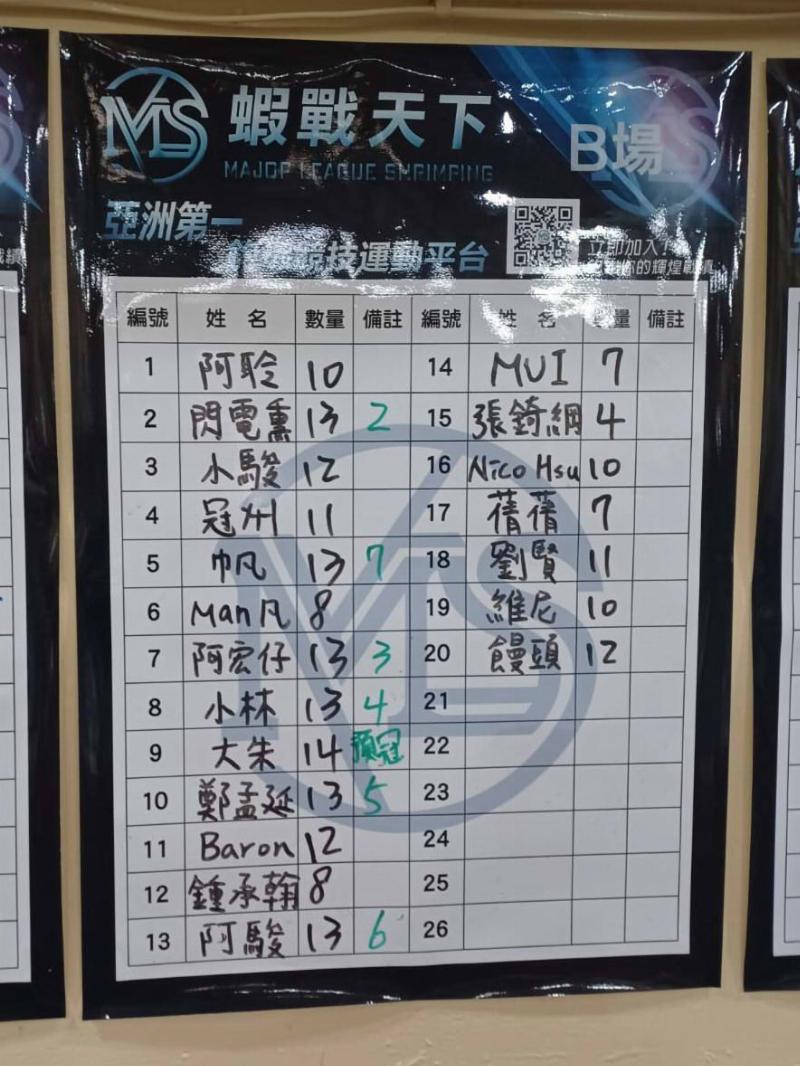 MLS 蝦戰天下 B場
MAJOR LEAGUE SHRIMPING
亞洲第一
競技運動平台
立即加入
的輝煌戰績
編號 姓 名 數量 備註 編號 姓 名 數量 備註
1 阿聆 10 14 MUI 7
2 閃電薰 13 2 15 張錡綱 4
3 小駿 12 16 Nico Hsu 10
4 冠州 11 17 蒨蒨 7
5 帆 13 7 18 劉賢 11
6 Man凡 8 19 維尼 10
7 阿宏仔 13 3 20 饅頭 12
8 小林 13 4 21
9 大朱 14 預冠 22
10 鄭孟延 13 5 23
11 Baron 12 24
12 鍾承翰 8 25
13 阿駿 13 6 26